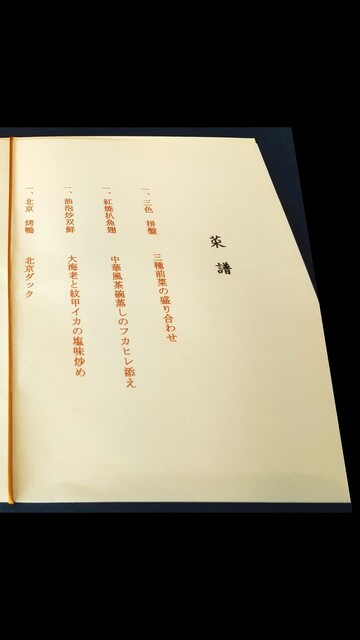 菜譜
一、三色 拼盤 三種前菜の盛り合わせ
一、紅焼扒魚翅 中華風茶碗蒸しのフカヒレ添え
一、油泡炒双鮮 大海老と紋甲イカの塩味炒め
一、北京 烤鴨 北京ダック